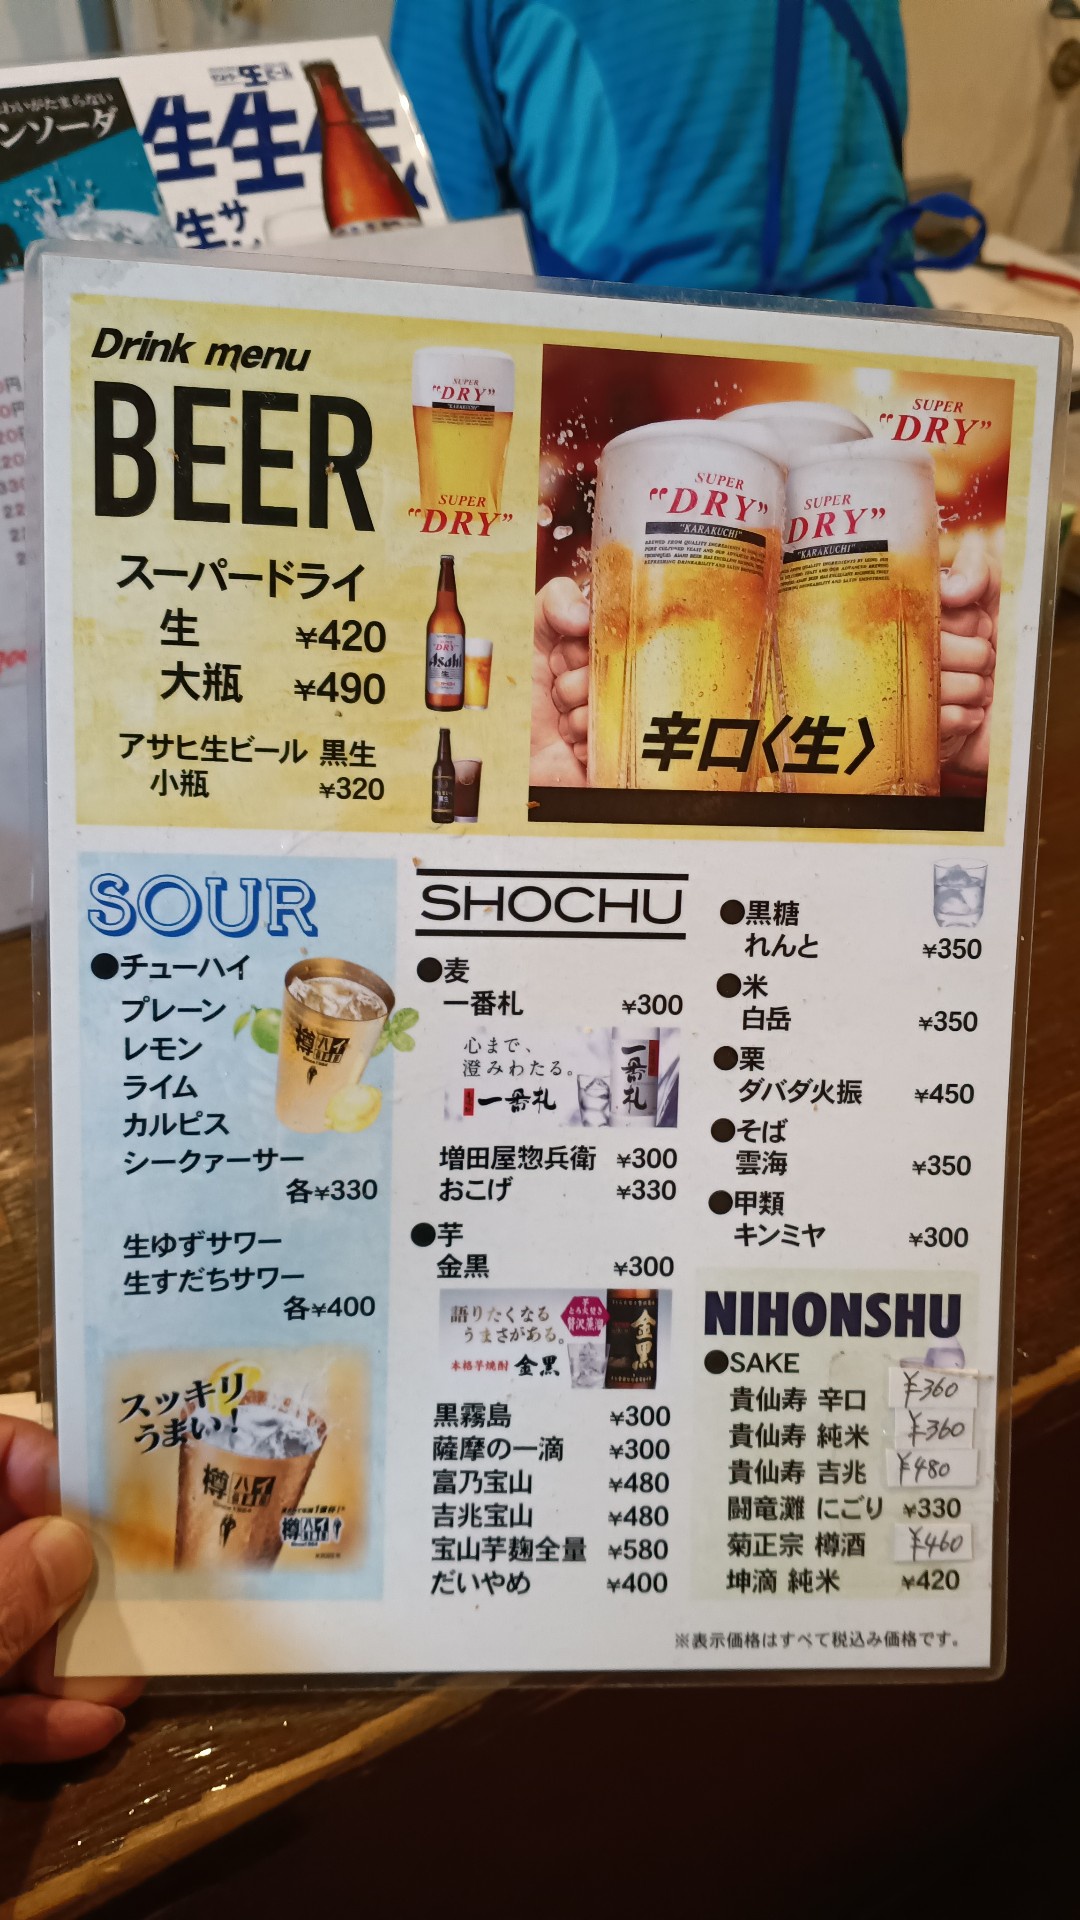 ンソーダ
生生生
生サ
Drink menu
BEER
スーパードライ
生 ¥420
大瓶 ¥490
アサヒ生ビール 黒生
小瓶 ¥320
SUPER
"DRY"
"KARAKUCHI"
SUPER
"DRY"
Asahi
SUPER
"DRY"
SUPER
"DRY"
"KARAKUCHI"
SUPER
DRY"
"KARAKUCHI"
辛口〈生〉
SOUR
●チューハイ
プレーン
レモン
ライム
カルピス
シークァーサー
各¥330
生ゆずサワー
生すだちサワー
各¥400
樽ハイ
スッキリ
うまい!
樽ハイ
樽ハイ
SHOCHU
●麦
一番札 ¥300
心まで、
澄みわたる。
一番札
一番札
増田屋惣兵衛 ¥300
おこげ ¥330
●芋
金黒 ¥300
語りたくなる
うまさがある。
芋
とろ火焚き
贅沢蒸溜
本格芋焼酎 金黒
金黒
黒霧島 ¥300
薩摩の一滴 ¥300
富乃宝山 ¥480
吉兆宝山 ¥480
宝山芋麹全量 ¥580
だいやめ ¥400
●黒糖
れんと ¥350
●米
白岳 ¥350
●栗
ダバダ火振 ¥450
●そば
雲海 ¥350
●甲類
キンミヤ ¥300
NIHONSHU
●SAKE
貴仙寿 辛口 ¥360
貴仙寿 純米 ¥360
貴仙寿 吉兆 ¥480
闘竜灘 にごり ¥330
菊正宗 樽酒 ¥460
坤滴 純米 ¥420
※表示価格はすべて税込み価格です。